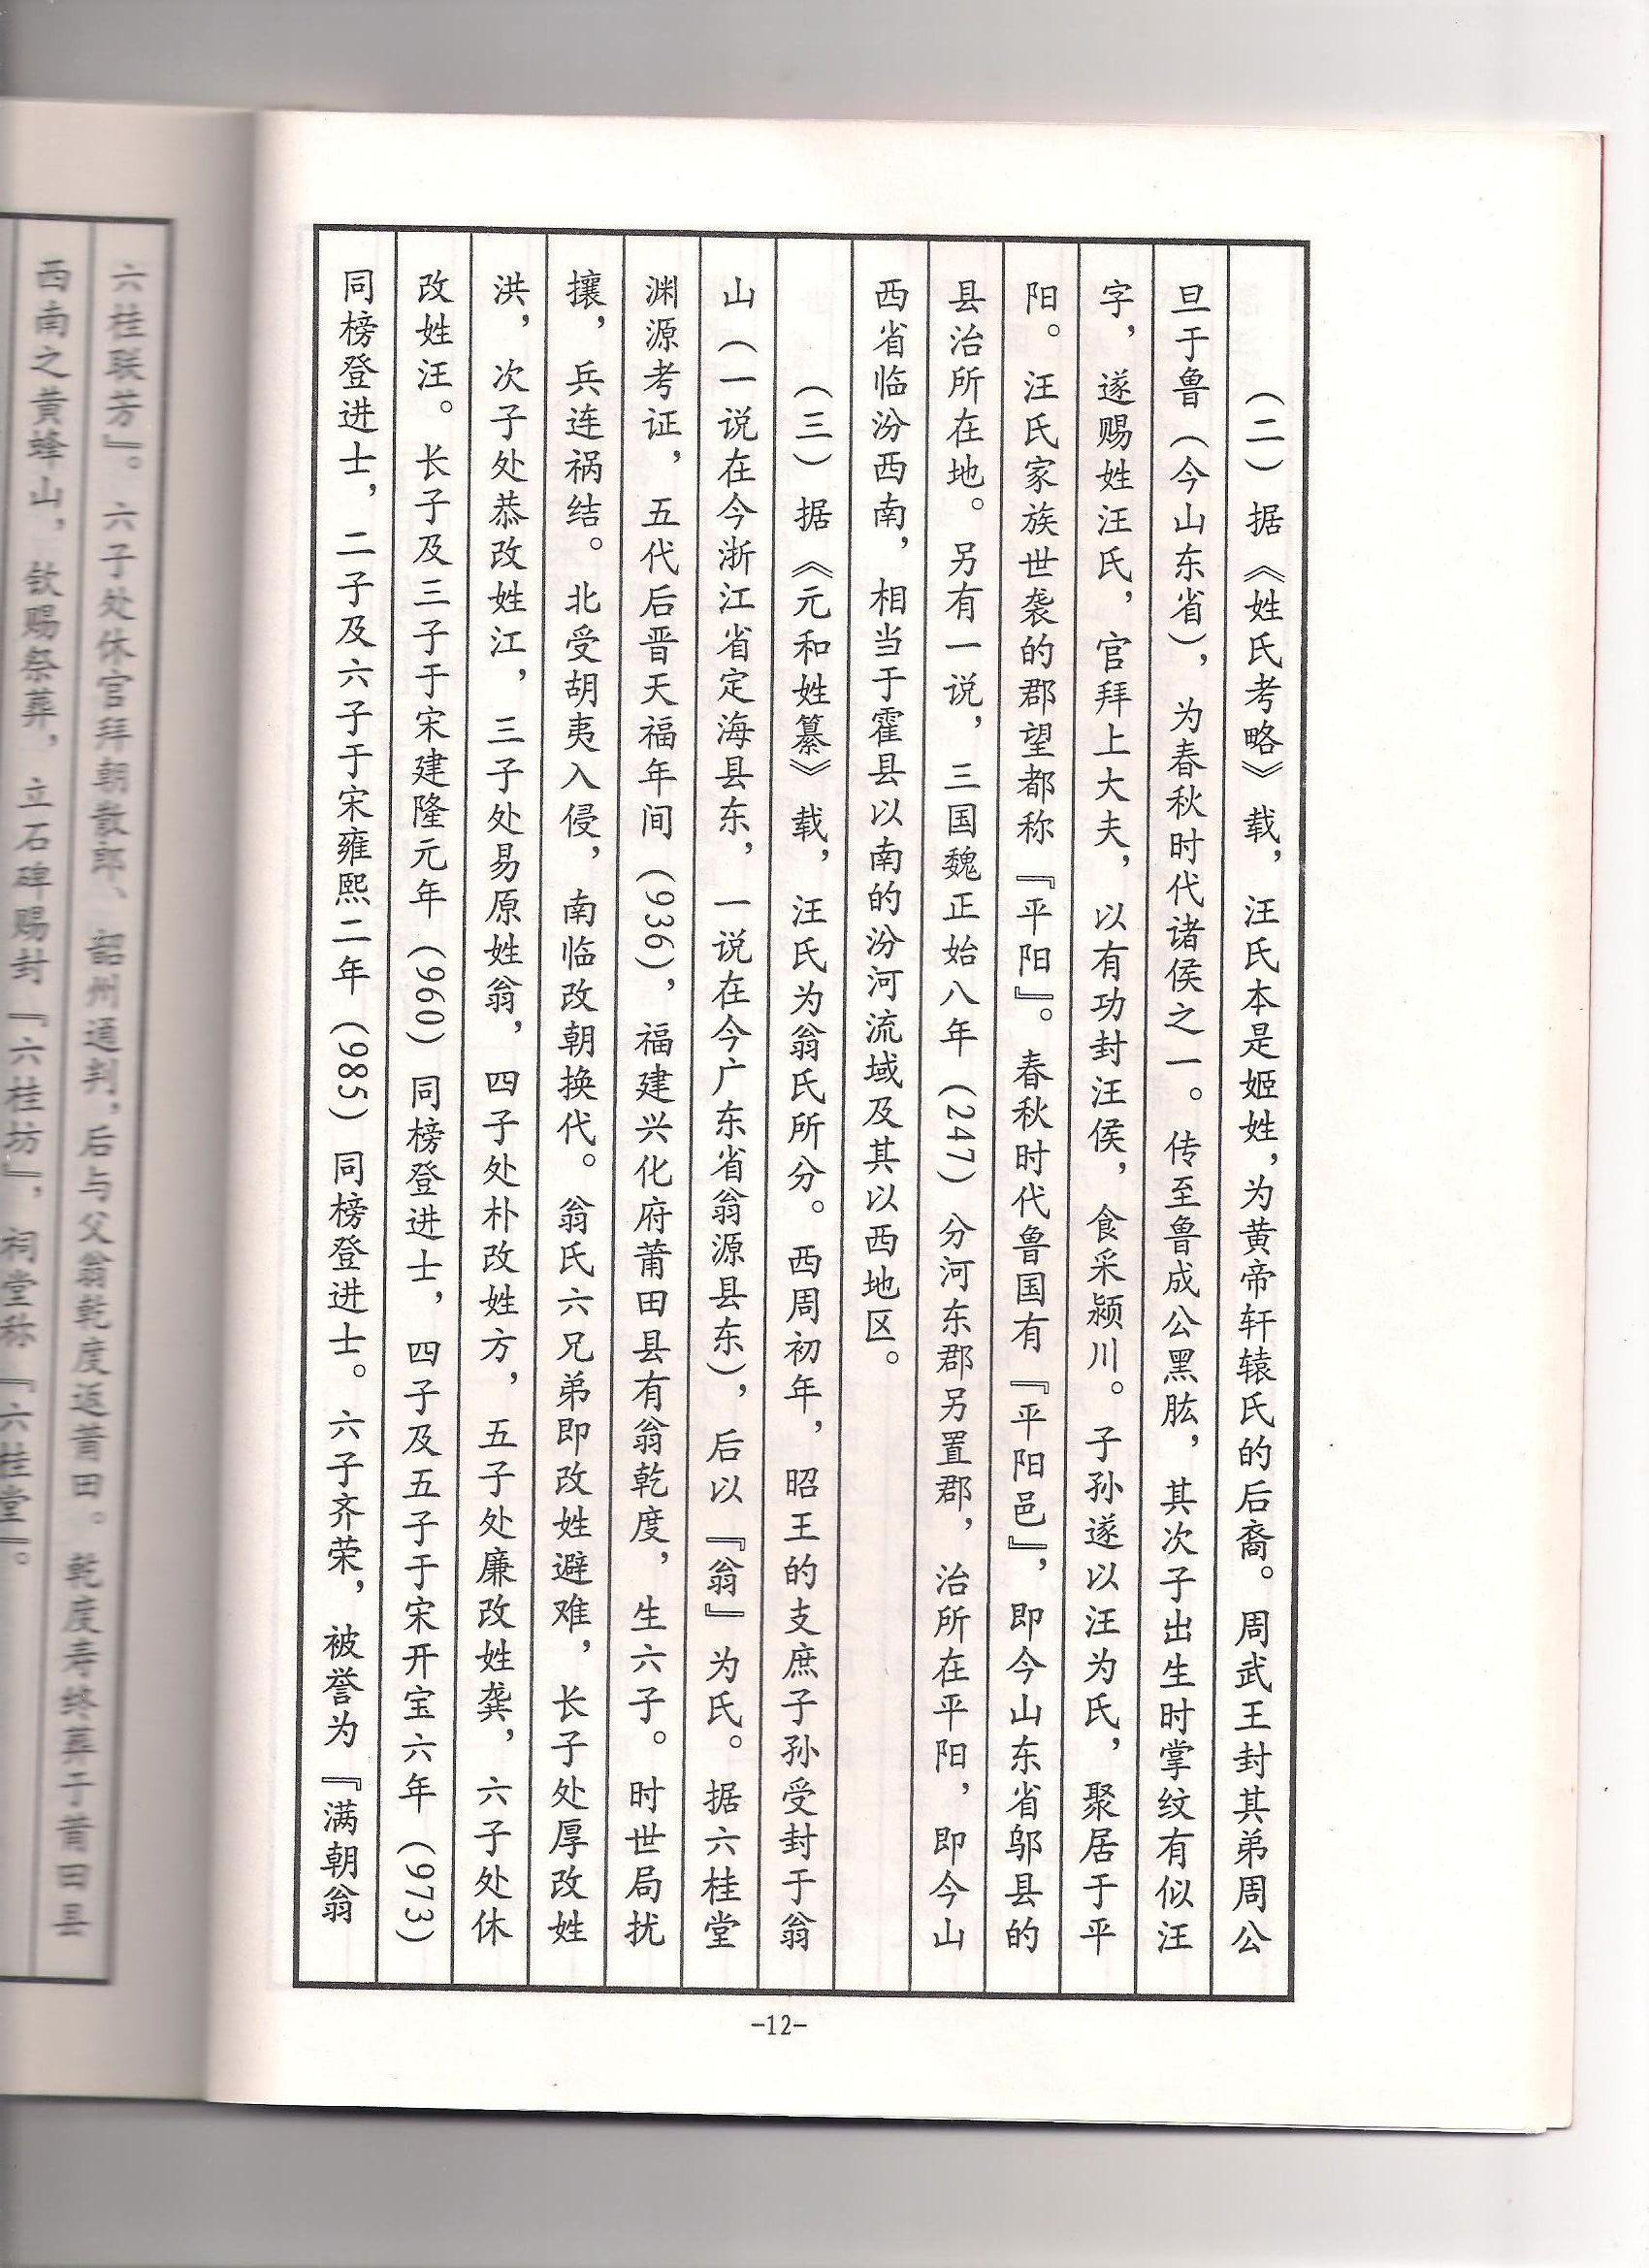 （二）据《姓氏考略》载，汪氏本是姬姓，为黄帝轩辕氏的后裔。周武王封其弟周公
旦于鲁（今山东省），为春秋时代诸侯之一。传至鲁成公黑肱，其次子出生时掌纹有似汪
字，遂赐姓汪氏，官拜上大夫，以有功封汪侯，食采颍川。子孙遂以汪为氏，聚居于平
阳。汪氏家族世袭的郡望都称『平阳』。春秋时代鲁国有『平阳邑』，即今山东省邬县的
县治所在地。另有一说，三国魏正始八年（247）分河东郡另置郡，治所在平阳，即今山
西省临汾西南，相当于霍县以南的汾河流域及其以西地区。
（三）据《元和姓纂》载，汪氏为翁氏所分。西周初年，昭王的支庶子孙受封于翁
山（一说在今浙江省定海县东，一说在今广东省翁源县东），后以『翁』为氏。据六桂堂
渊源考证，五代后晋天福年间（936），福建兴化府莆田县有翁乾度，生六子。时世局扰
攘，兵连祸结。北受胡夷入侵，南临改朝换代。翁氏六兄弟即改姓避难，长子处厚改姓
洪，次子处恭改姓江，三子处易原姓翁，四子处朴改姓方，五子处廉改姓龚，六子处休
改姓汪。长子及三子于宋建隆元年（960）同榜登进士，四子及五子于宋开宝六年（973）
同榜登进士，二子及六子于宋雍熙二年（985）同榜登进士。六子齐荣，被誉为『满朝翁
-12-
六桂联芳』。六子处休官拜朝散郎、韶州通判，后与父翁乾度返莆田。乾度寿终葬于莆田县
西南之黄蜂山，钦赐祭葬，立石碑赐封『六桂坊』，祠堂称『六桂堂』。